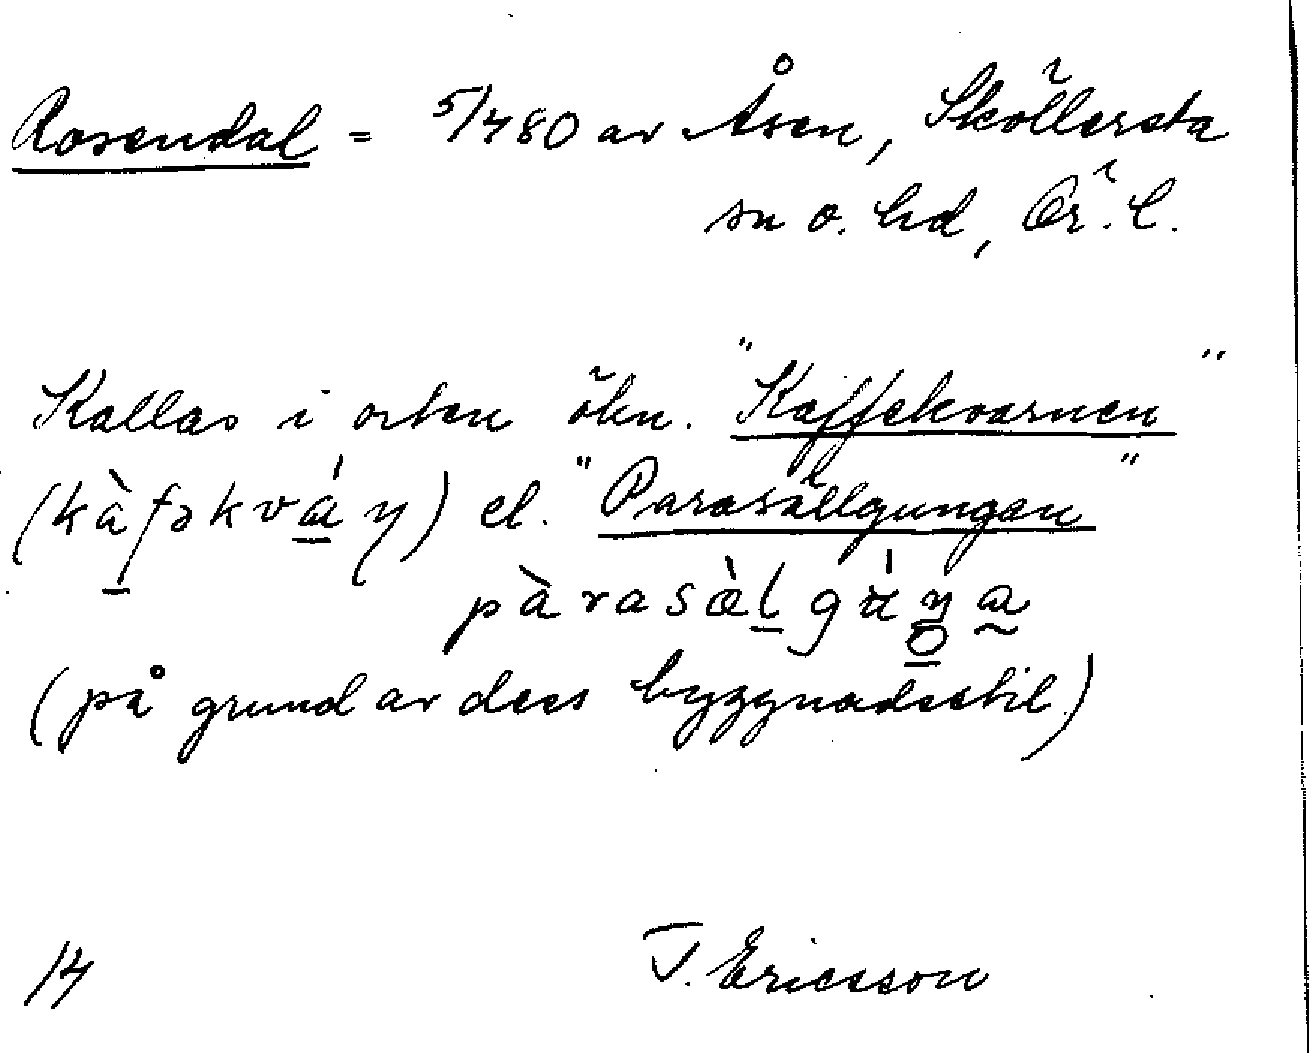 Rosendal = 5/480 av Åsen, Sköllersta
sn o. hd, Ör. l.
Kallas i orten ökn. "Kaffekvarnen"
(kàfəkváɳ) el. "Parasällgungan"
pàrasæ̀l
(på grund av dess byggnadsstil)
14 T. Ericsson